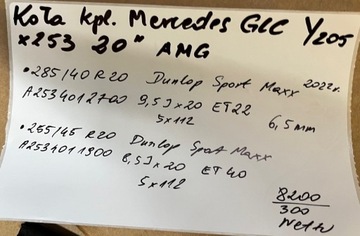 Koła kpl. Mercedes GLC Y205
x253 20" AMG
• 285/40 R20 Dunlop Sport Maxx 2022r.
A2534012700 9,5J x 20 ET22 6,5mm
5x112
• 255/45 R20 Dunlop Spot Maxx
A2534011900 8,5J x 20 ET 40
5x112
8200
300
Netto